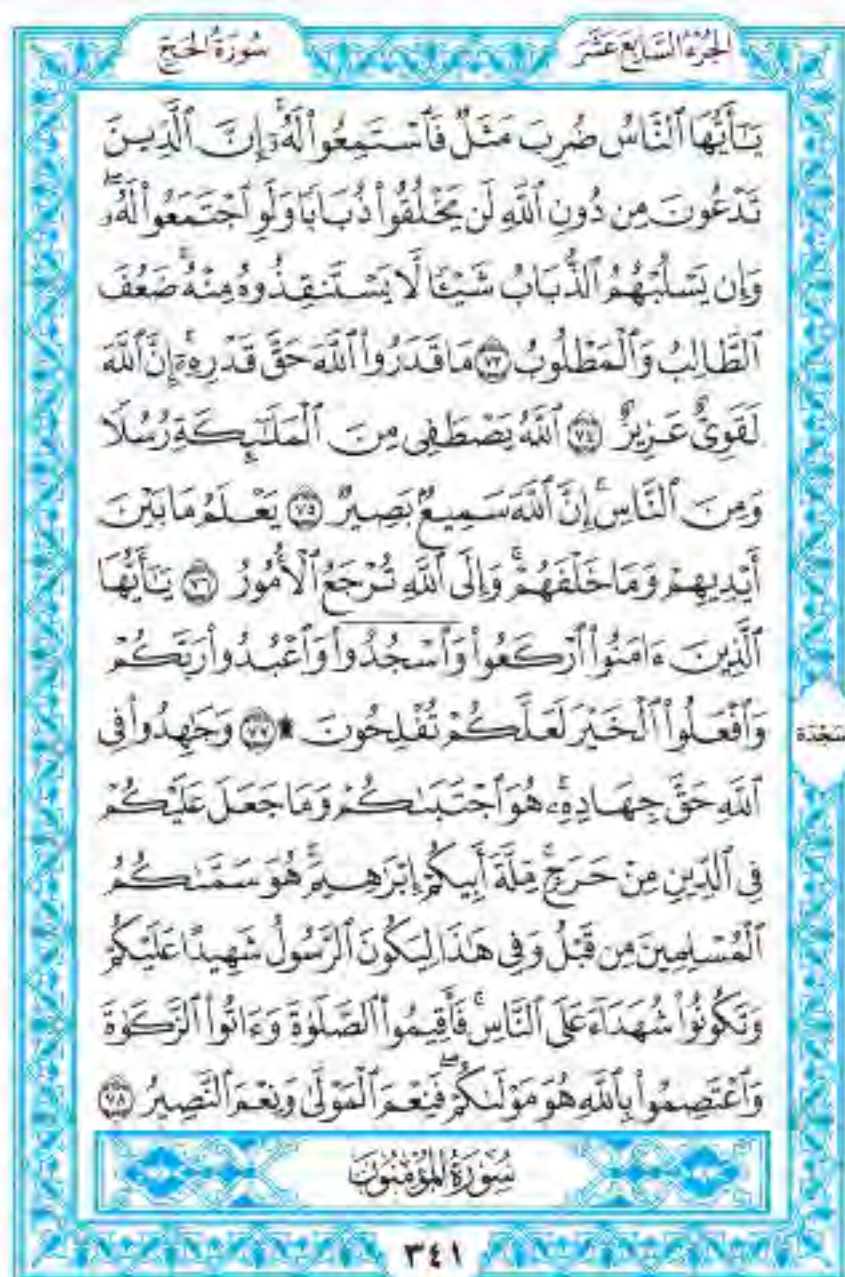 الجزء السابع عشر
سورة الحج
يَٰٓأَيُّهَا ٱلنَّاسُ ضُرِبَ مَثَلٌ فَٱسْتَمِعُوا۟ لَهُۥٓ ۚ إِنَّ ٱلَّذِينَ
تَدْعُونَ مِن دُونِ ٱللَّهِ لَن يَخْلُقُوا۟ ذُبَابًا وَلَوِ ٱجْتَمَعُوا۟ لَهُۥ ۖ
وَإِن يَسْلُبْهُمُ ٱلذُّبَابُ شَيْـًٔا لَّا يَسْتَنقِذُوهُ مِنْهُ ۚ ضَعُفَ
ٱلطَّالِبُ وَٱلْمَطْلُوبُ ٧٣ مَا قَدَرُوا۟ ٱللَّهَ حَقَّ قَدْرِهِۦٓ ۚ إِنَّ ٱللَّهَ
لَقَوِىٌّ عَزِيزٌ ٧٤ ٱللَّهُ يَصْطَفِى مِنَ ٱلْمَلَٰٓئِكَةِ رُسُلًا
وَمِنَ ٱلنَّاسِ ۚ إِنَّ ٱللَّهَ سَمِيعٌۢ بَصِيرٌ ٧٥ يَعْلَمُ مَا بَيْنَ
أَيْدِيهِمْ وَمَا خَلْفَهُمْ ۗ وَإِلَى ٱللَّهِ تُرْجَعُ ٱلْأُمُورُ ٧٦ يَٰٓأَيُّهَا
ٱلَّذِينَ ءَامَنُوا۟ ٱرْكَعُوا۟ وَٱسْجُدُوا۟ وَٱعْبُدُوا۟ رَبَّكُمْ
وَٱفْعَلُوا۟ ٱلْخَيْرَ لَعَلَّكُمْ تُفْلِحُونَ ۩ ٧٧ وَجَٰهِدُوا۟ فِى
سَجْدَة
ٱللَّهِ حَقَّ جِهَادِهِۦ ۚ هُوَ ٱجْتَبَىٰكُمْ وَمَا جَعَلَ عَلَيْكُمْ
فِى ٱلدِّينِ مِنْ حَرَجٍ ۚ مِّلَّةَ أَبِيكُمْ إِبْرَٰهِيمَ ۚ هُوَ سَمَّىٰكُمُ
ٱلْمُسْلِمِينَ مِن قَبْلُ وَفِى هَٰذَا لِيَكُونَ ٱلرَّسُولُ شَهِيدًا عَلَيْكُمْ
وَتَكُونُوا۟ شُهَدَآءَ عَلَى ٱلنَّاسِ ۚ فَأَقِيمُوا۟ ٱلصَّلَوٰةَ وَءَاتُوا۟ ٱلزَّكَوٰةَ
وَٱعْتَصِمُوا۟ بِٱللَّهِ هُوَ مَوْلَىٰكُمْ ۖ فَنِعْمَ ٱلْمَوْلَىٰ وَنِعْمَ ٱلنَّصِيرُ ٧٨
سُورَةُ المُؤْمِنُونَ
٣٤١